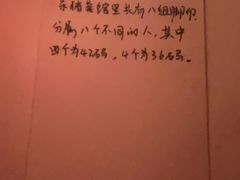 杂货菜馆里共有八组脚印
分属八个不同的人,其中
四个为42码,4个为36码。